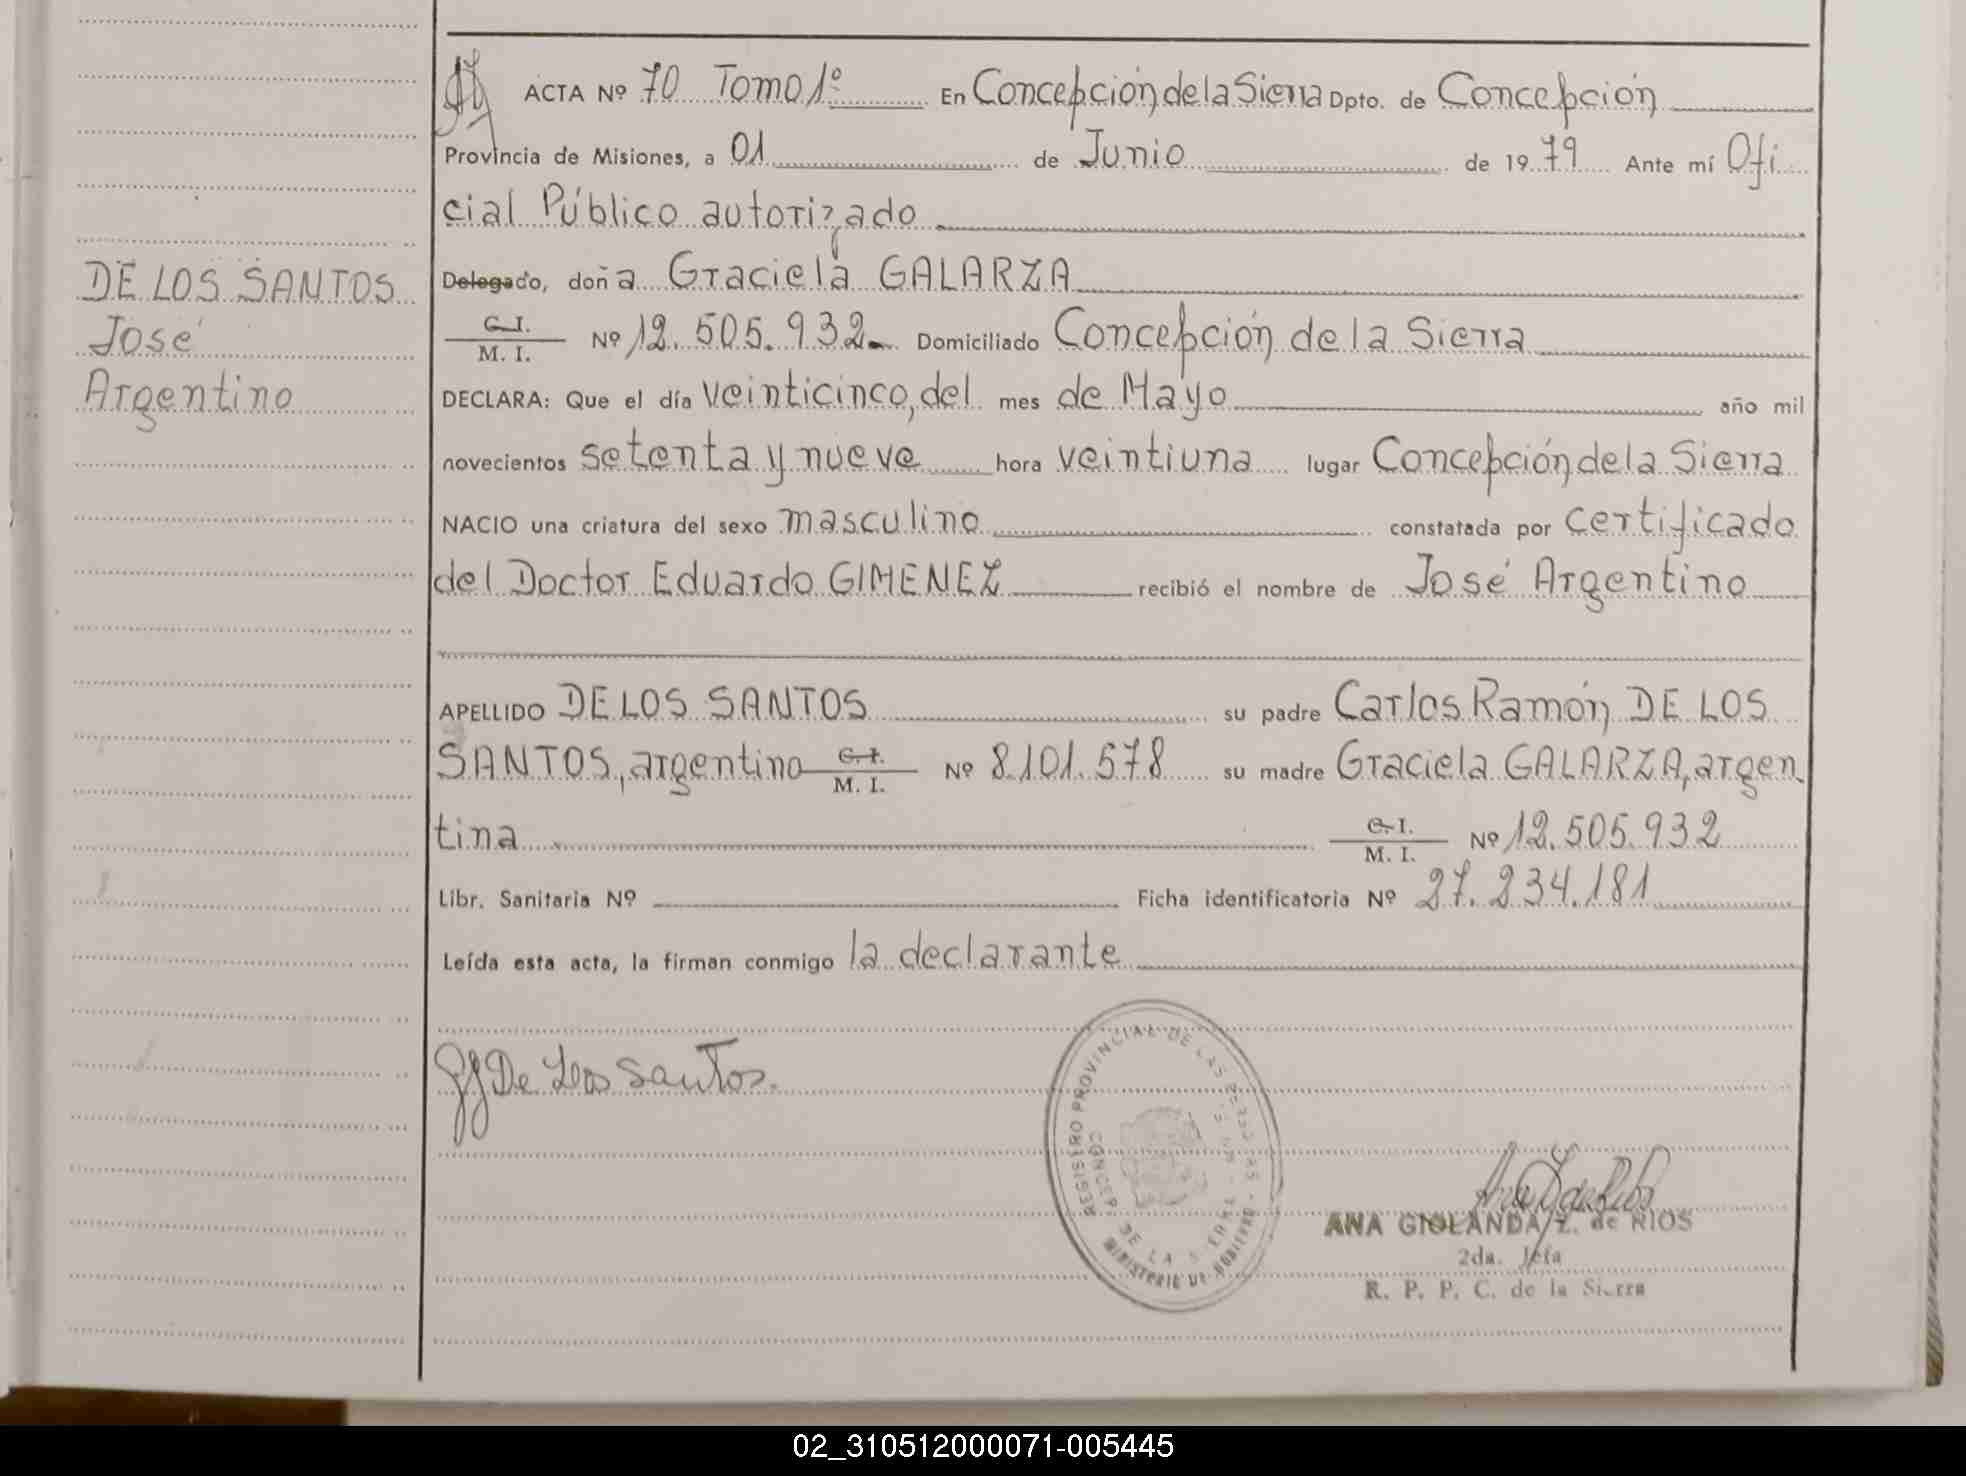 ACTA Nº 70 Tomo 1º En Concepción de la Sierra Dpto. de Concepción
Provincia de Misiones, a 01 de Junio de 1979 Ante mí Ofi
cial Público autorizado
DE LOS SANTOS
José
Argentino
Delegado, doña Graciela GALARZA
C. I.
M. I. Nº 12.505.932 Domiciliado Concepción de la Sierra
DECLARA: Que el día veinticinco, del mes de Mayo año mil
novecientos setenta y nueve hora veintiuna lugar Concepción de la Sierra
NACIO una criatura del sexo masculino constatada por certificado
del Doctor Eduardo GIMENEZ recibió el nombre de José Argentino
APELLIDO DE LOS SANTOS su padre Carlos Ramón DE LOS
SANTOS, argentino C. I. M. I. Nº 8.101.578 su madre Graciela GALARZA, argen
tina C. I. M. I. Nº 12.505.932
Libr. Sanitaria Nº Ficha identificatoria Nº 27.234.181
Leída esta acta, la firman conmigo la declarante
De Los Santos.
REGISTRO PROVINCIAL DE LAS
CONCEP. DE LA SIERRA
MINISTERIO DE GOBIERNO
ANA GIOLANDA Z. de RIOS
2da. Jefa
R. P. P. C. de la Sierra
02_310512000071-005445